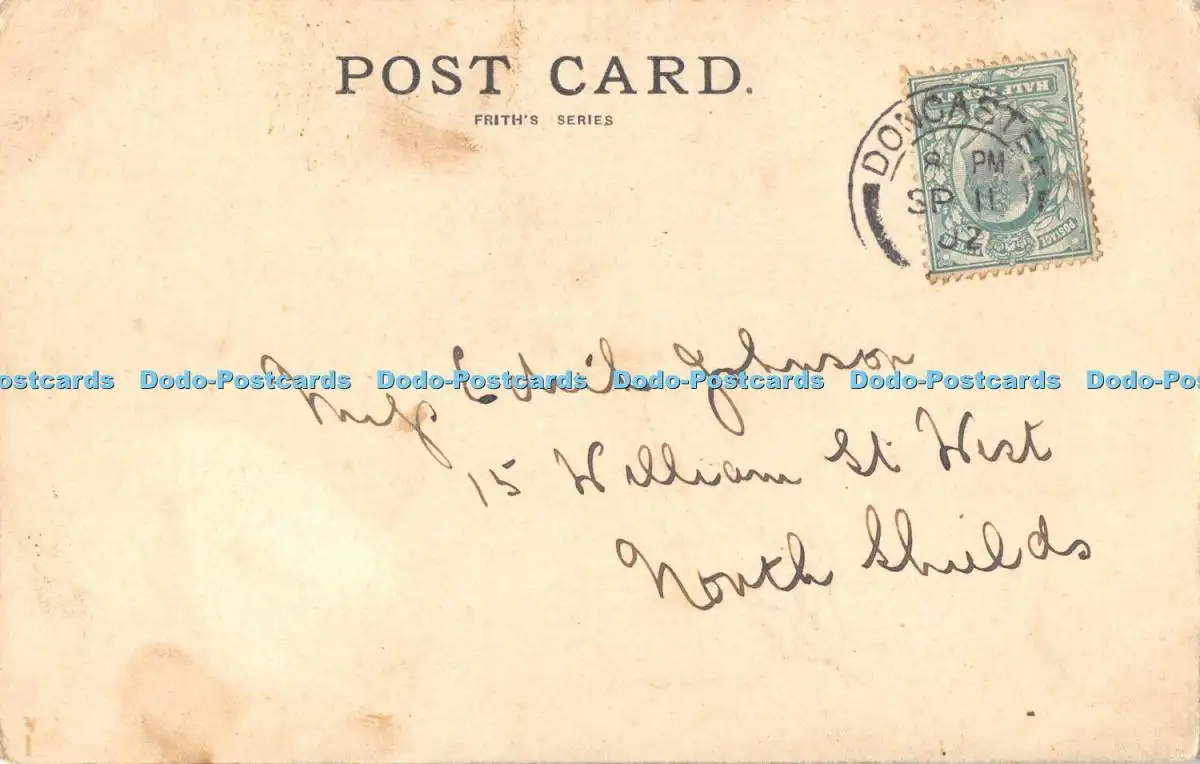 POST CARD.
FRITH'S SERIES
DONCASTER
PM
SP 11
02
HALF PENNY
POSTAGE
Dodo-Postcards Dodo-Postcards Dodo-Postcards Dodo-Postcards
Miss Johnson
15 William St West
North Shields